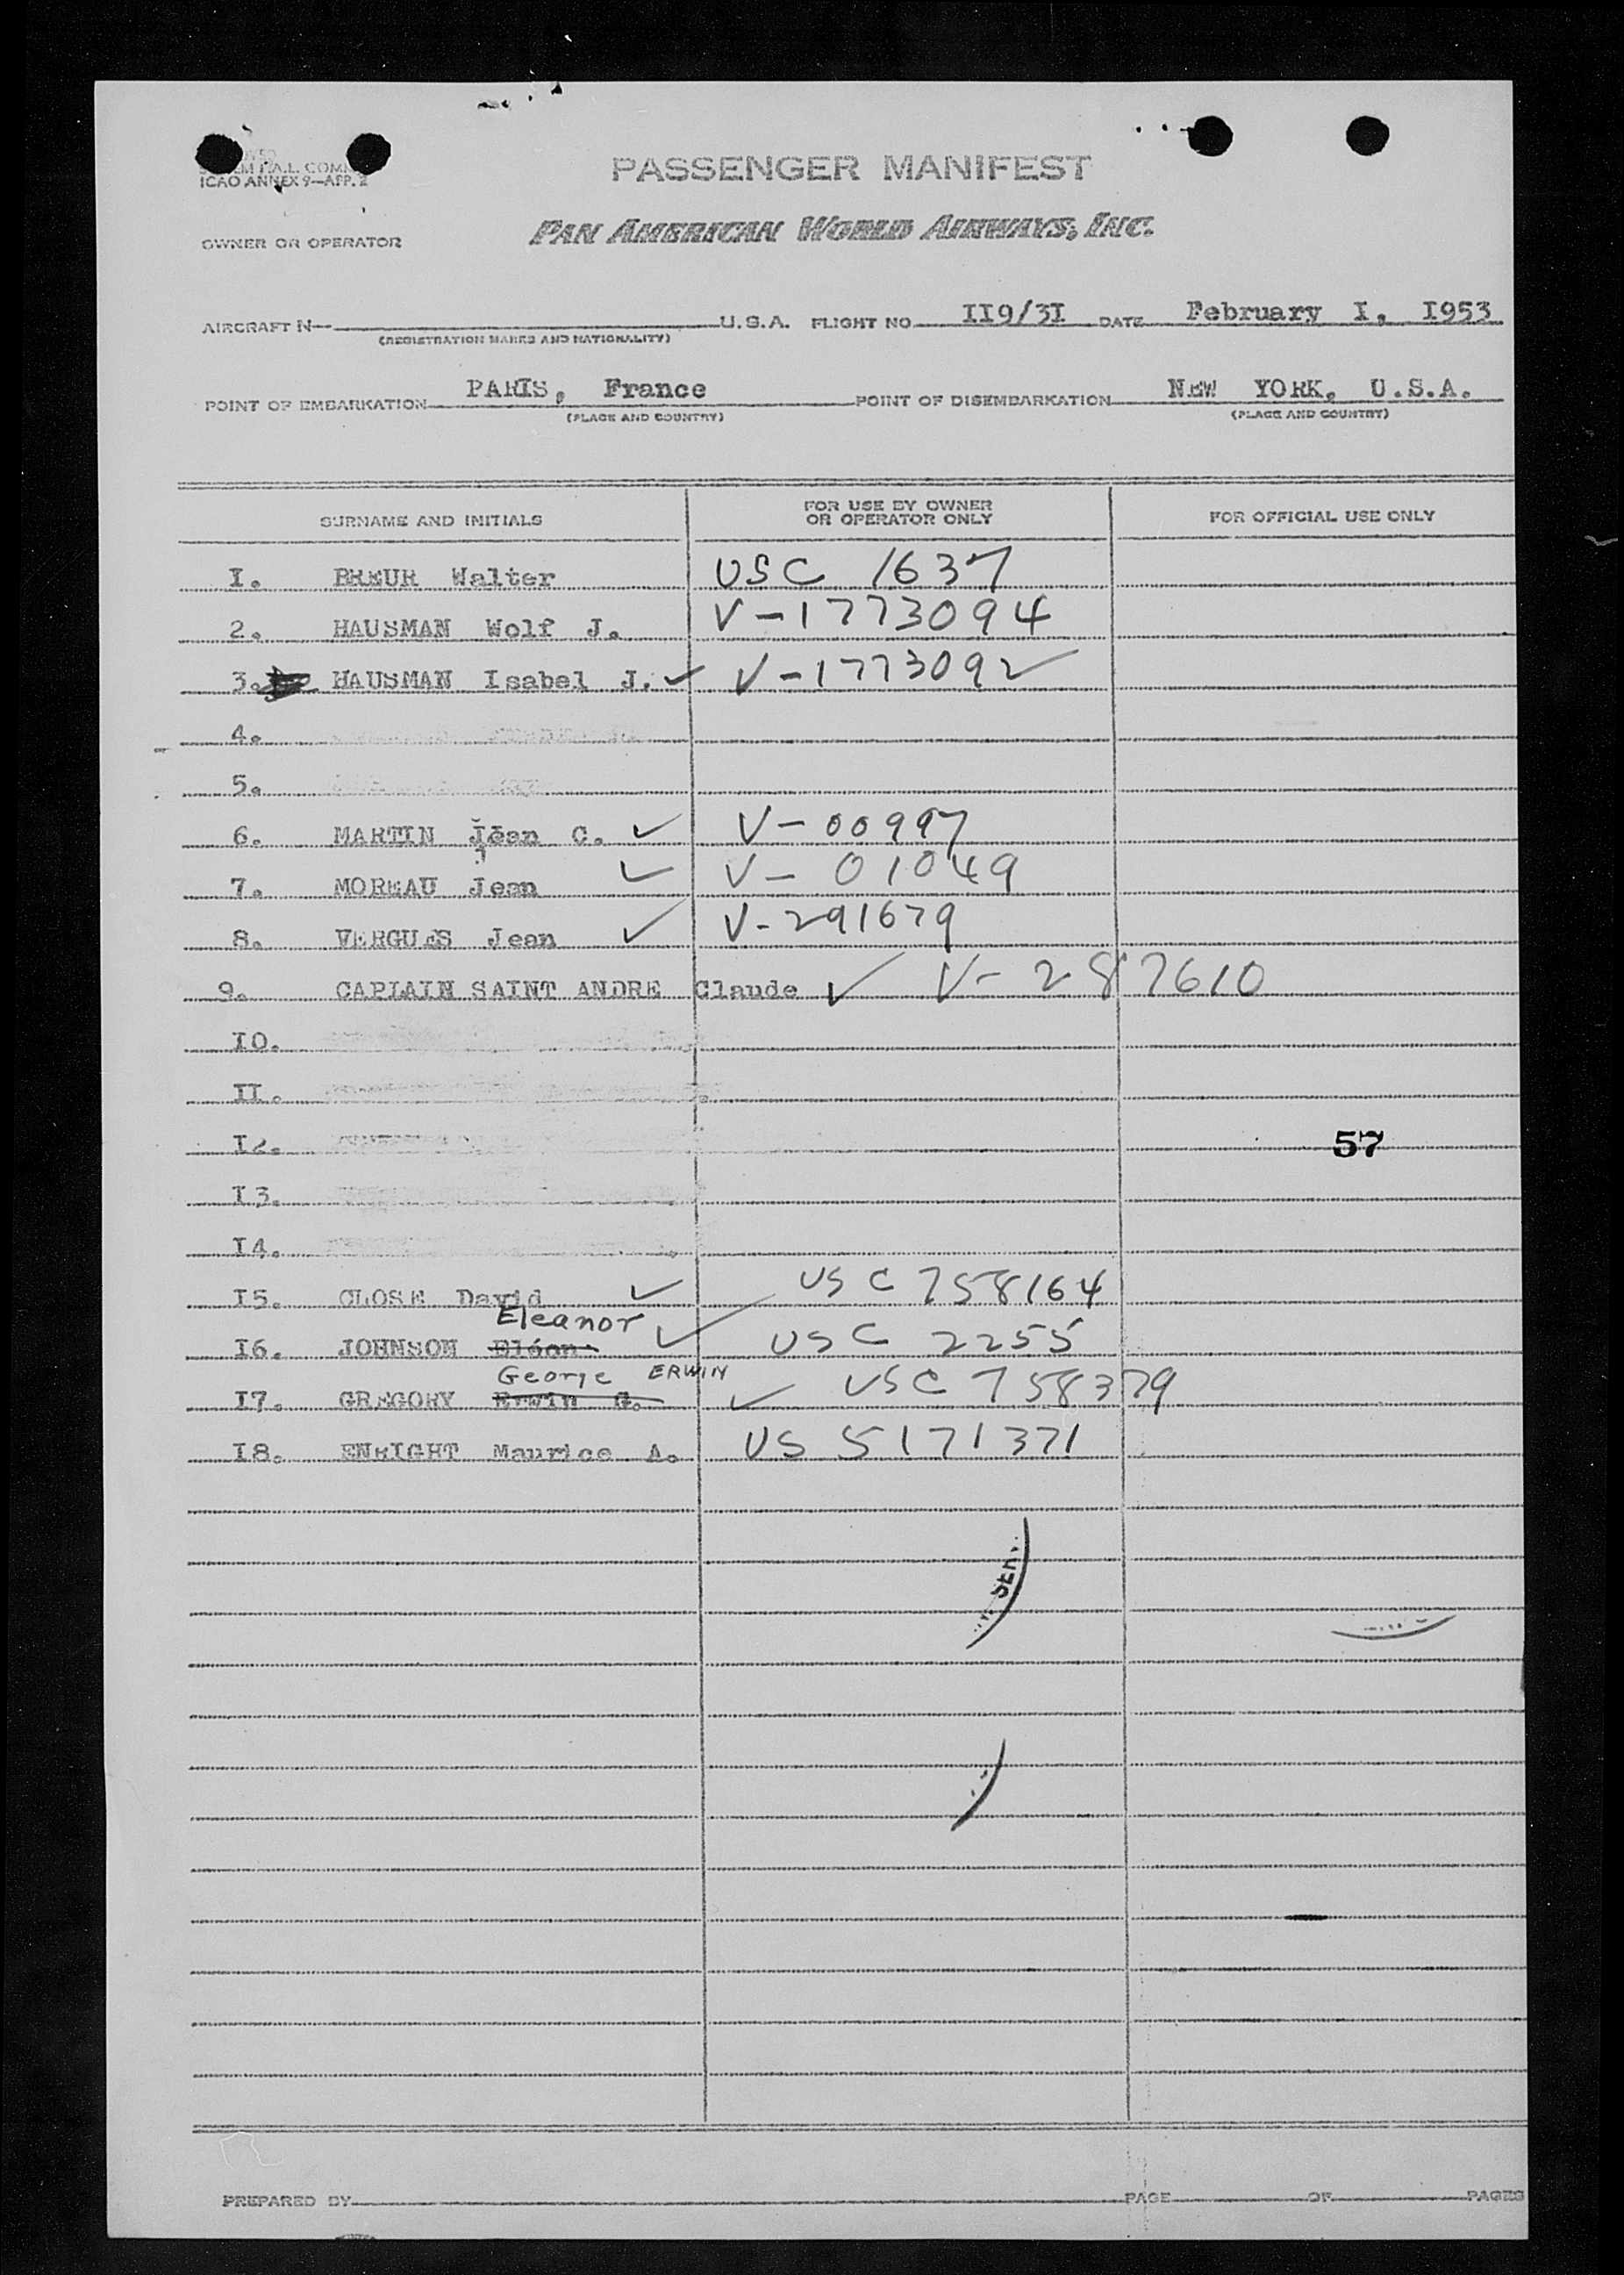 ICAO ANNEX 9—APP. 2
PASSENGER MANIFEST
OWNER OR OPERATOR PAN AMERICAN WORLD AIRWAYS, INC.
AIRCRAFT N- U.S.A. FLIGHT NO II9/3I DATE February I, I953
(REGISTRATION MARKS AND NATIONALITY)
POINT OF EMBARKATION PARIS, France POINT OF DISEMBARKATION NEW YORK, U.S.A.
(PLACE AND COUNTRY) (PLACE AND COUNTRY)
SURNAME AND INITIALS FOR USE BY OWNER OR OPERATOR ONLY FOR OFFICIAL USE ONLY
I. BREUR Walter USC 1637
2. HAUSMAN Wolf J. V-1773094
3. HAUSMAN Isabel J. ✓ V-1773092
4.
5.
6. MARTIN Jean C. ✓ V-00997
7. MOREAU Jean ✓ V-01049
8. VERGUES Jean ✓ V-291679
9. CAPLAIN SAINT ANDRE Claude ✓ V-287610
I0.
II.
I2. 57
I3.
I4.
I5. CLOSE David ✓ USC 758164
Eleanor
I6. JOHNSON Eléan ✓ USC 2255
George ERWIN
I7. GREGORY Erwin G. ✓ USC 758379
I8. ENRIGHT Maurice A. US 5171371
SER.
PREPARED BY PAGE OF PAGES